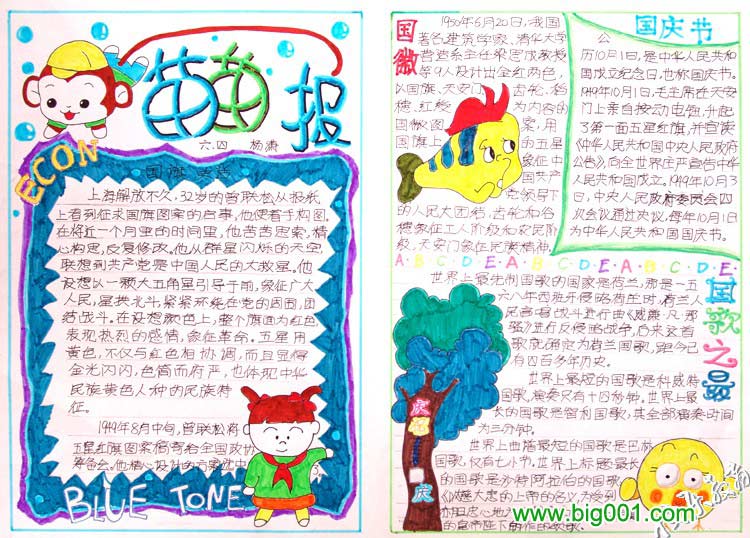 苗苗报
六.四 杨康
ECON
国旗的传说
上海解放不久,32岁的曾联松从报纸
上看到征求国旗图案的启事,他便着手构图,
在将近一个月里的时间里,他苦苦思索,精
心构思,反复修改。他从群星闪烁的天空,
联想到共产党是中国人民的大救星。他
设想以一颗大五角星引导于前,象征广大
人民,星拱北斗紧紧环绕在党的周围,团
结战斗。在设想颜色上,整个旗面为红色,
表现热烈的感情,象征革命,五星用
黄色,不仅与红色相协调,而且显得
金光闪闪,色简而庄严,也体现中华
民族黄色人种的民族特
征。
1949年8月中旬,曾联松将
五星红旗图案稿寄给全国政协
筹备会。他精心设计的方案选中
BLUE TONE
国徽
1950年6月20日,我国
著名建筑学家、清华大学
营造系主任梁思成教授
等9人设计出金红两色,
以国旗、天安门、齿轮、稻
穗、红绶为内容的
国徽图案,用
国旗上的五星
象征中
国共产
党领导下
的人民大团结,齿轮和谷
穗象征工人阶级和农民阶
级,天安门象征民族精神。
国庆节
公
历10月1日,是中华人民共和
国成立纪念日,也称国庆节。
1949年10月1日,毛主席在天安
门上亲自按动电钮,升起
了第一面五星红旗,并宣读
《中华人民共和国中央人民政府
公告》,向全世界庄严宣告中华
人民共和国成立。1949年10月3
日,中央人民政府委员会四
次会议通过决议,每年10月1日
为中华人民共和国国庆节。
A·B·C·D·E·A·B·C·D·E·A·B·C·D·E
国歌之最
世界上最先制国歌的国家是荷兰,那是一五
六八年西班牙侵略荷兰时,荷兰人
民高唱战斗进行曲《威廉·凡·那
骚》进行反侵略战争,自来这首
歌就确定为荷兰国歌,距今已
有四百多年历史。
世界上最短的国歌是科威特
国歌,演奏只有十四秒钟。世界上最
长的国歌是智利国歌,其全部演奏时间
为三分钟。
世界上曲谱最短的国歌是巴林
国歌,仅有七小节。世界上标题最长
的国歌是沙特阿拉伯的国歌
庆祝
国庆
www.big001.com